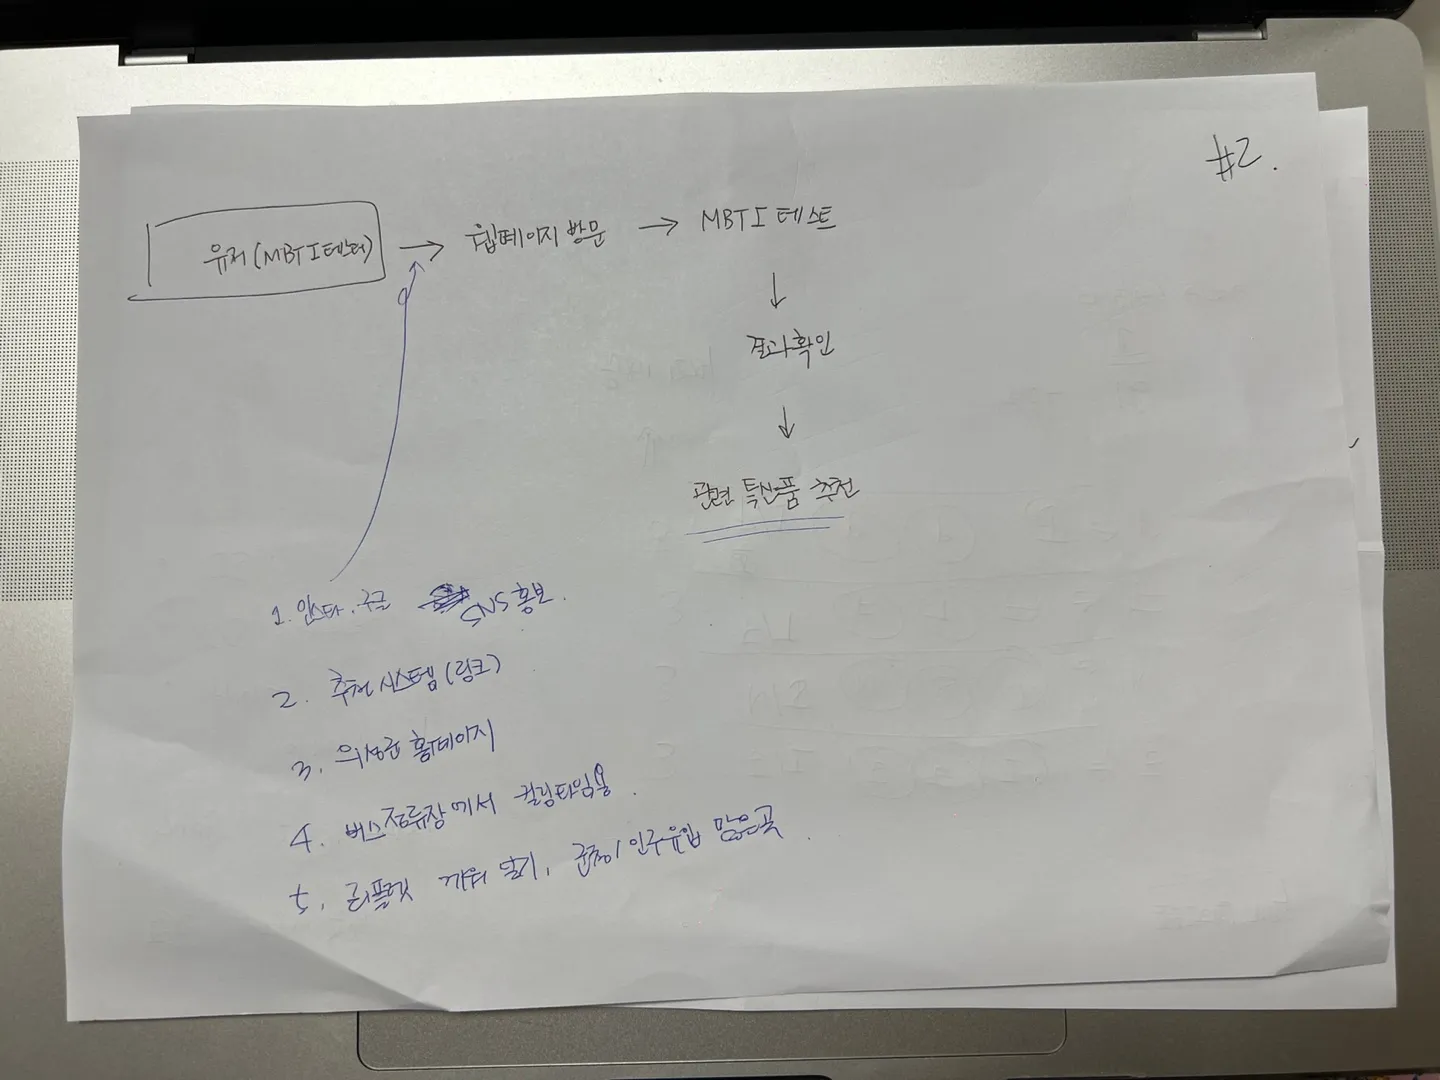 #2.
유저(MBTI테스터) → 웹페이지 방문 → MBTI 테스트
↓
결과확인
↓
관련 특산품 추천
1. 인스타, 구글 SNS 홍보.
2. 추천 시스템 (링크)
3. 의성군 홈페이지
4. 버스정류장에서 킬링타임용.
5. 리플렛 끼워 팔기, 군청이 인구유입 많은곳.